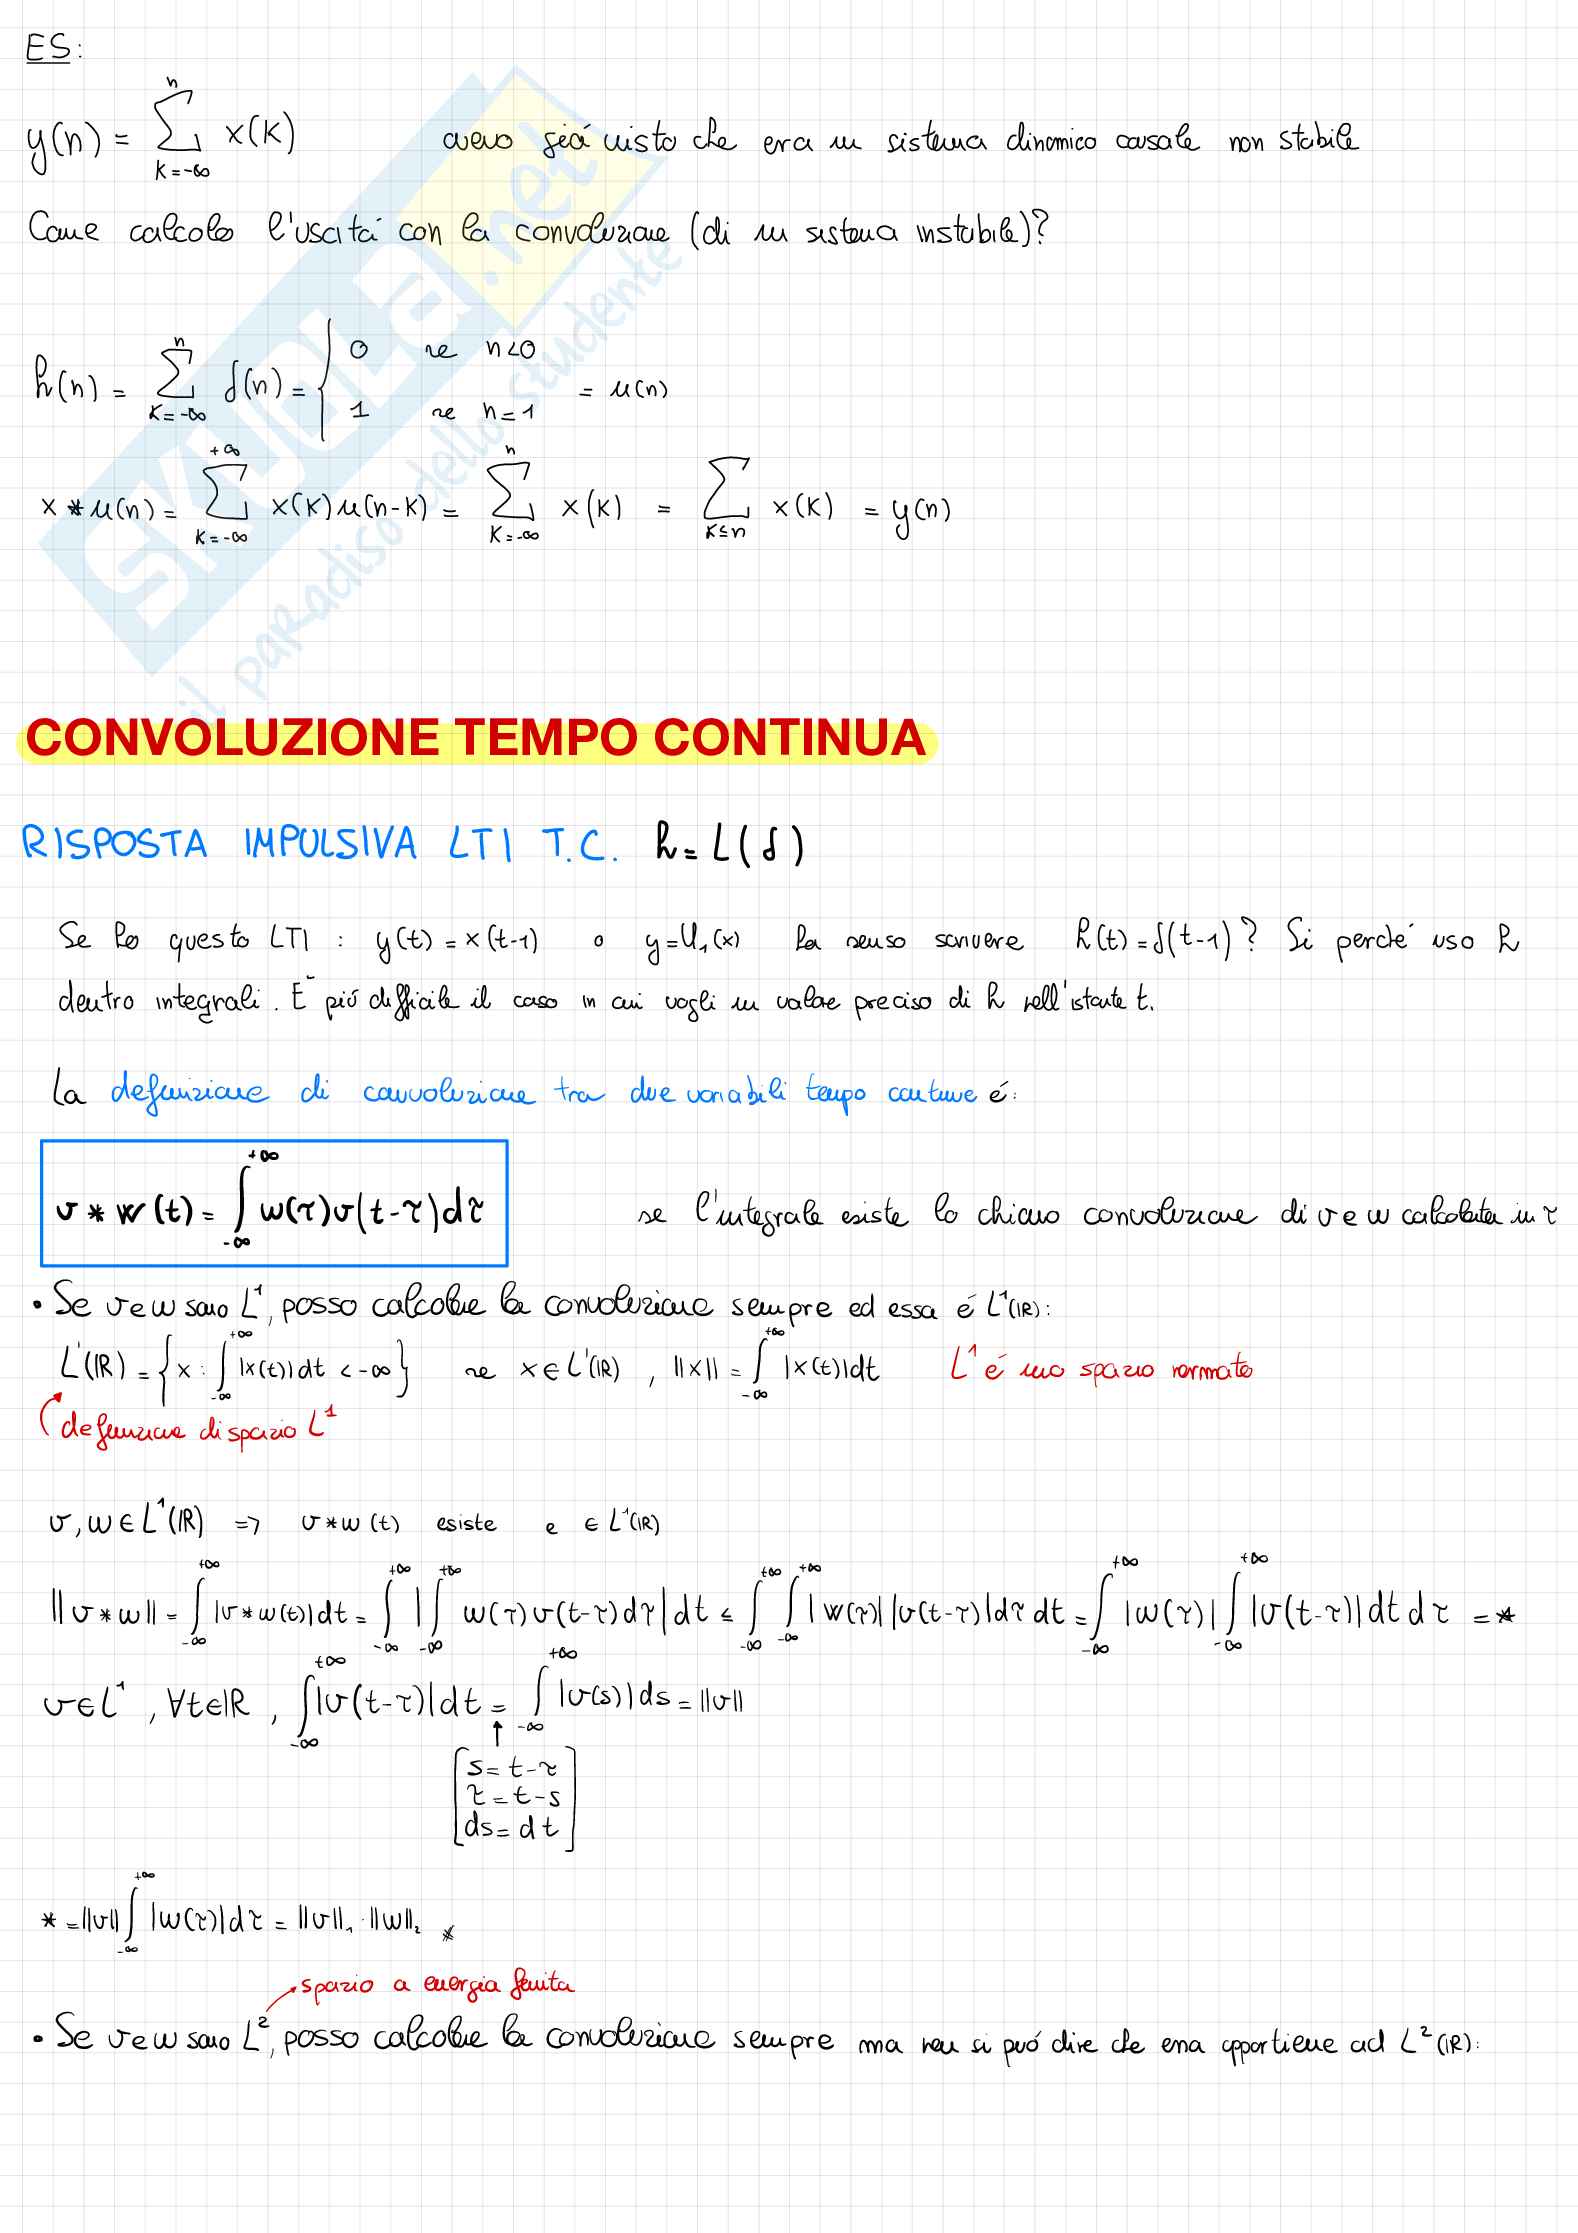 ES:
y(n) = ∑_{K=-∞}^{n} x(K) avevo giá visto che era un sistema dinamico causale non stabile
Come calcolo l'uscitá con la convoluzione (di un sistema instabile)?
h(n) = ∑_{K=-∞}^{n} δ(n) = { 0 se n<0 ; 1 se n=1 = u(n)
x * u(n) = ∑_{K=-∞}^{+∞} x(K) u(n-K) = ∑_{K=-∞}^{n} x(K) = ∑_{K≤n} x(K) = y(n)
SKUOLA.net
il paradiso dello studente
CONVOLUZIONE TEMPO CONTINUA
RISPOSTA IMPULSIVA LTI T.C. h = L(δ)
Se ho questo LTI : y(t) = x(t-1) o y = U₁(x) ha senso scrivere h(t) = δ(t-1)? Si perché uso h
dentro integrali. È piú difficile il caso in cui vogli un valore preciso di h nell'istante t.
La definizione di convoluzione tra due variabili tempo continue é:
v * w (t) = ∫_{-∞}^{+∞} w(τ) v(t-τ) dτ se l'integrale esiste lo chiamo convoluzione di v e w calcolata in τ
• Se v e w sono L¹, posso calcolare la convoluzione sempre ed essa é L¹(ℝ):
L¹(ℝ) = { x : ∫_{-∞}^{+∞} |x(t)| dt < -∞ } se x ∈ L¹(ℝ) , ||x|| = ∫_{-∞}^{+∞} |x(t)| dt L¹ é uno spazio normato
definizione di spazio L¹
v, w ∈ L¹(ℝ) => v * w (t) esiste e ∈ L¹(ℝ)
||v * w|| = ∫_{-∞}^{+∞} |v * w(t)| dt = ∫_{-∞}^{+∞} | ∫_{-∞}^{+∞} w(τ) v(t-τ) dτ | dt ≤ ∫_{-∞}^{+∞} ∫_{-∞}^{+∞} |w(τ)| |v(t-τ)| dτ dt = ∫_{-∞}^{+∞} |w(τ)| ∫_{-∞}^{+∞} |v(t-τ)| dt dτ = *
v ∈ L¹ , ∀t ∈ ℝ , ∫_{-∞}^{+∞} |v(t-τ)| dt = ∫_{-∞}^{+∞} |v(s)| ds = ||v||
s = t-τ
τ = t-s
ds = dt
* = ||v|| ∫_{-∞}^{+∞} |w(τ)| dτ = ||v||₁ · ||w||₂ *
spazio a energia finita
• Se v e w sono L², posso calcolare la convoluzione sempre ma non si puó dire che essa appartiene ad L²(ℝ):